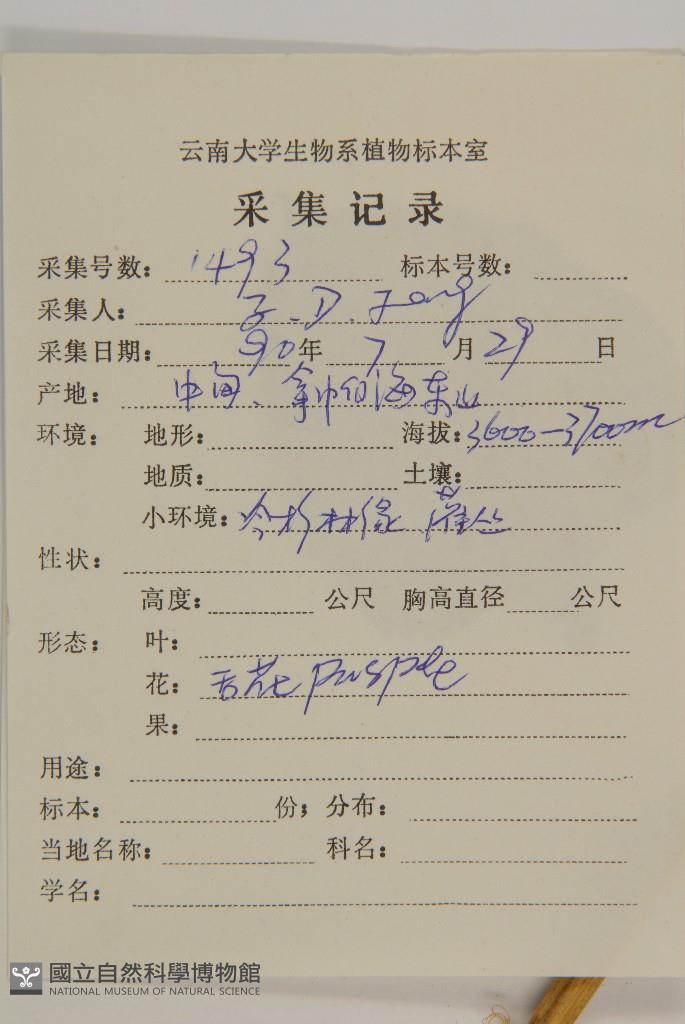 云南大学生物系植物标本室
采集记录
采集号数: 1493 标本号数:
采集人: D.
采集日期: 90年 7月29日
产地: 中甸、拿帕海东山
环境: 地形: 海拔: 3600-3700m
地质: 土壤:
小环境: 冷杉林缘 灌丛
性状:
高度: 公尺 胸高直径 公尺
形态: 叶:
花: 舌花 purple
果:
用途:
标本: 份; 分布:
当地名称: 科名:
学名:
國立自然科學博物館
NATIONAL MUSEUM OF NATURAL SCIENCE